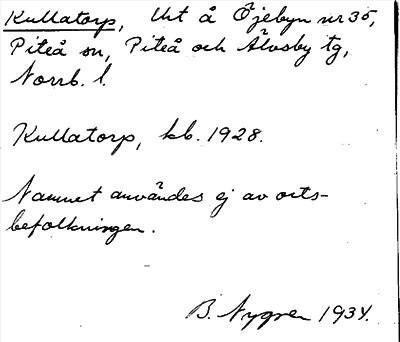 Kullatorp, Uht å Öjebyn nr 35,
Piteå sn, Piteå och Älvsby tg,
Norrb. l.
Kullatorp, kb. 1928.
Namnet användes ej av orts-
befolkningen.
B. Nygren 1934.